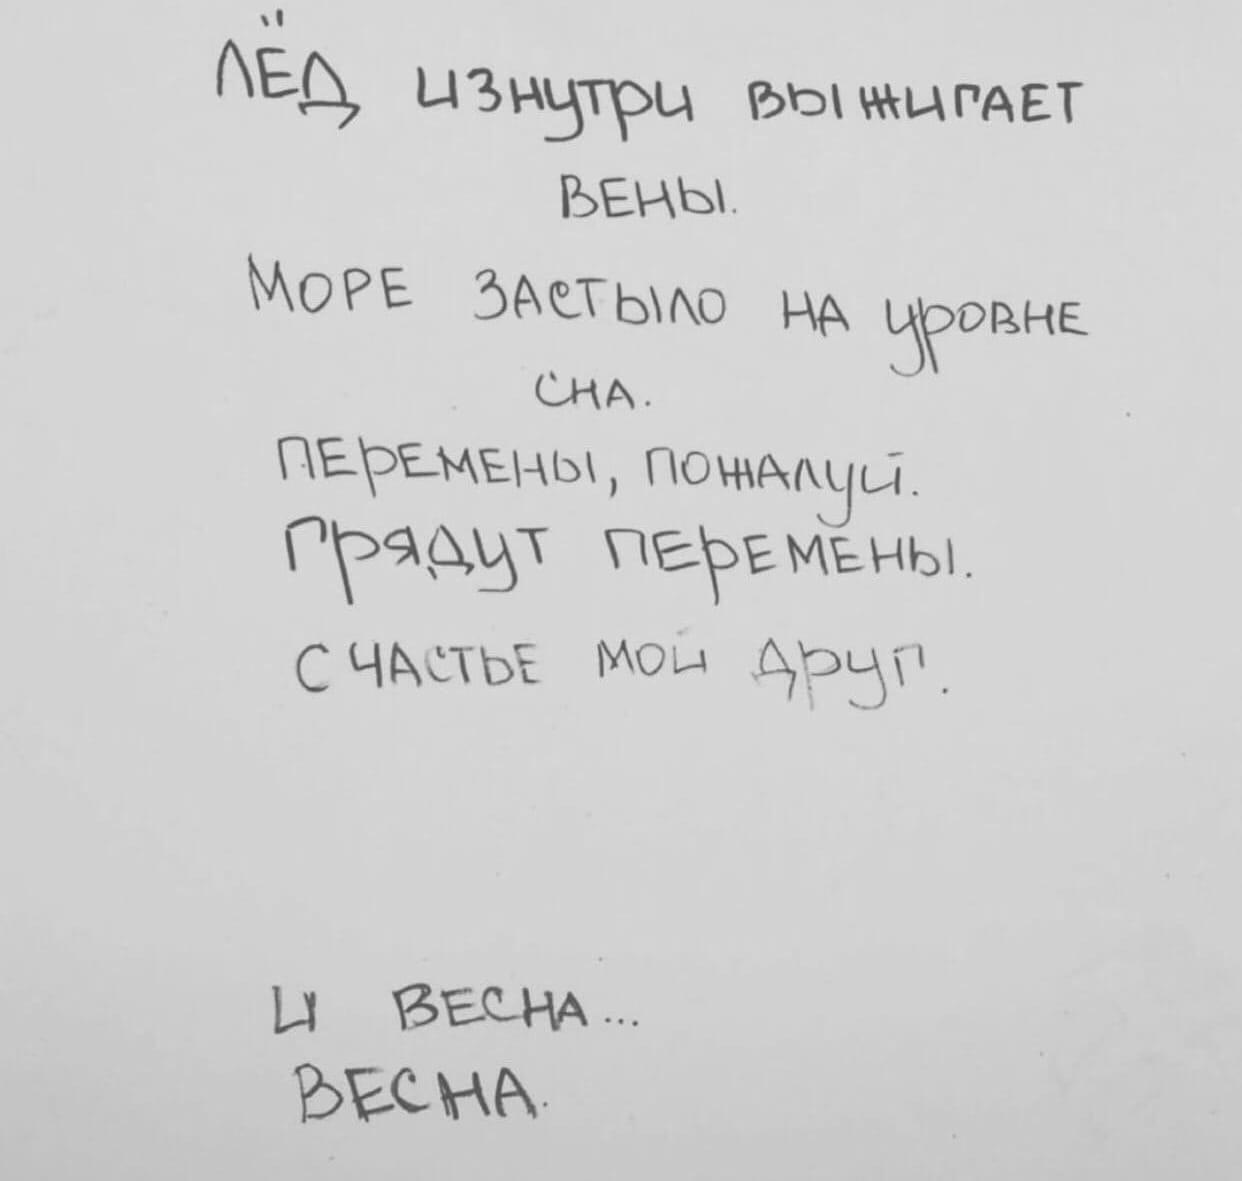 ЛЁД ИЗНУТРИ ВЫЖИГАЕТ
ВЕНЫ.
МОРЕ ЗАСТЫЛО НА УРОВНЕ
СНА.
ПЕРЕМЕНЫ, ПОЖАЛУЙ.
ГРЯДУТ ПЕРЕМЕНЫ.
СЧАСТЬЕ МОЙ ДРУГ.
И ВЕСНА...
ВЕСНА.